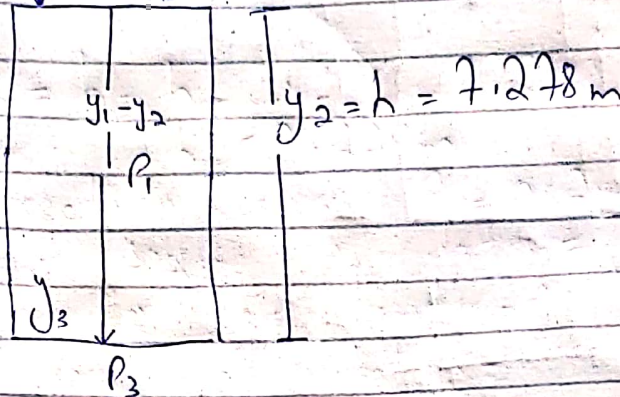 y₁-y₂
y₂=h = 7.278 m
P₁
y₃
P₃